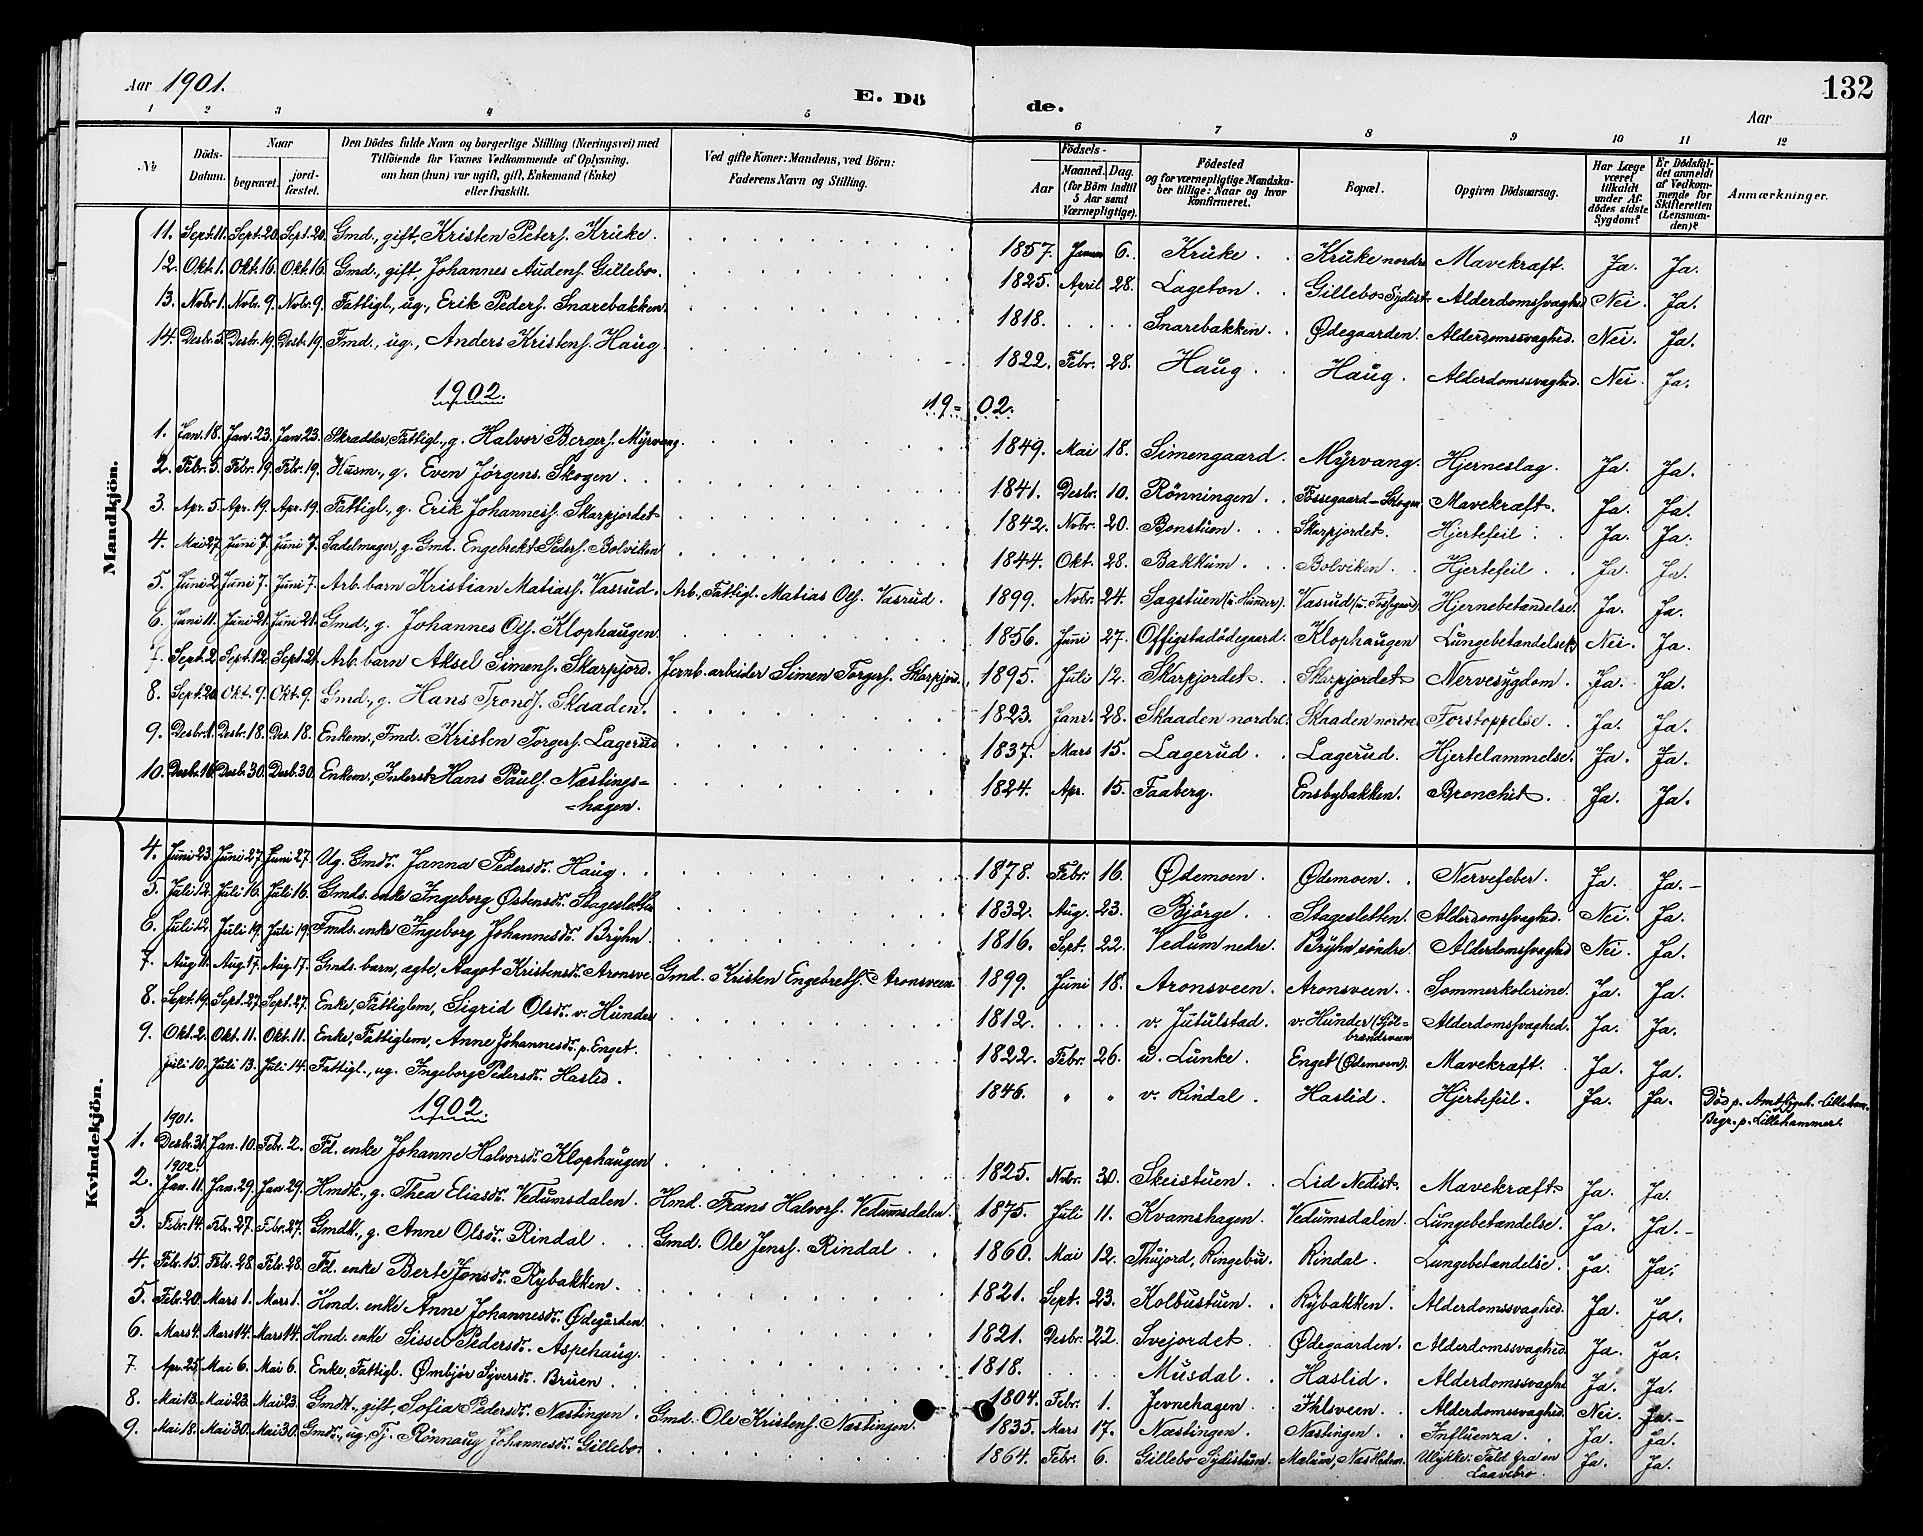 Aar 1901.
E. Dö
de.
Aar
132
1 2 3 4 5 6 7 8 9 10 11 12
No
Döds-Datum.
Naar
begravet.
jordfæstet.
Den Dödes fulde Navn og borgerlige Stilling (Næringsvei) med
Tilföiende for Voxnes Vedkommende af Oplysning,
om han (hun) var ugift, gift, Enkemand (Enke)
eller fraskilt.
Ved gifte Koner: Mandens, ved Börn:
Faderens Navn og Stilling.
Födsels-
Aar
Maaned. Dag.
(for Börn indtil
5 Aar samt
Værnepligtige).
Födested
og for værnepligtige Mandskaber tillige: Naar og hvor
konfirmeret.
Bopæl.
Opgiven Dödsaarsag.
Har Læge været tilkaldt under Afdödes sidste Sygdom?
Er Dödsfaldet anmeldt af Vedkommende for Skifteretten (Lensmanden)?
Anmærkninger.
Mandkjön.
11. Sept. 11. Sept. 20. Sept. 20. Gmd., gift, Kristen Peters. Kruke. 1857. Januar 6. Kruke. Kruke nordre Mavekræft. Ja. Ja.
12. Okt. 1. Okt. 16. Okt. 16. Gmd., gift, Johannes Audens. Gillebo. 1825. April 28. Lageton. Gillebo Sydist. Alderdomssvaghed Nei. Ja.
13. Novbr 1. Nobr. 9. Nobr. 9. Fattigl., ug., Erik Peders. Snarebakken. 1818. Snarebakken. Ødegaarden. Alderdomssvaghed. Nei. Ja.
14. Desbr. 5. Desbr. 19. Desbr. 19. Fmd., ug., Anders Kristens. Haug. 1822. Febr. 28. Haug. Haug. Alderdomssvaghed. Nei. Ja.
1902.
19-02.
1. Jan. 18. Jan. 23. Jan. 23. Skrædder, Fattigl., g. Halvor Bergers. Myrvang. 1849. Mai 18. Simengaard. Myrvang. Hjerneslag. Ja. Ja.
2. Febr. 5. Febr. 19. Febr. 19. Husm., g. Even Jørgens. Skogen. 1841. Desbr. 10. Rönningen. Fossegaard-Skogen Mavekræft. Ja. Ja.
3. Apr. 5. Apr. 19. Apr. 19. Fattigl., g. Erik Johanness. Skarpjordet 1842. Nobr. 20. Bonstuen. Skarpjordet. Hjertefeil. Ja. Ja.
4. Mai 27. Juni 7. Juni 7. Sadelmager, g. Gmd. Engebrekt Peders. Bolviken 1844. Okt. 28. Bakkum. Bolviken. Hjertefeil. Ja. Ja.
5. Juni 2. Juni 7. Juni 7. Arb. barn Kristian Matiass. Vasrud. Arb., Fattigl. Matias Ols. Vasrud. 1899. Nobr. 24. Sagstuen (u. Hunder). Vasrud (u. Fossegaard). Hjernebetændelse. Ja. Ja.
6. Juni 11. Juni 21. Juni 21. Gmd., g. Johannes Ols. Klophaugen. 1856. Juni 27. Offigstadödegaard. Klophaugen Lungebetændelse. Nei. Ja.
7. Sept. 2. Sept. 12. Sept. 21. Arb. barn Aksel Simens. Skarpjord. Jernb. arbeider Simen Torgers. Skarpjord. 1895. Juli 12. Skarpjordet. Skarpjordet. Nervesygdom. Ja. Ja.
8. Sept. 20. Okt. 9. Okt. 9. Gmd., g. Hans Tronds. Skaaden. 1823. Janr. 28. Skaaden nordre. Skaaden nordre. Forstoppelse. Ja. Ja.
9. Desbr. 1. Desbr. 18. Des. 18. Enkem., Fmd. Kristen Torgers. Lagerud 1837. Mars 15. Lagerud. Lagerud. Hjertelammelse. Ja. Ja.
10. Desbr. 16. Desb. 30. Desb. 30. Enkem., Inderst Hans Pauls. Næstings= 1824. Apr. 15. Faaberg. Ensbybakken. Bronchit. Ja. Ja.
=hagen.
Kvindekjön.
4. Juni 23. Juni 27. Juni 27. Ug. Gmdr. Janna Pedersdr. Haug. 1878. Febr. 16. Ødemoen. Ødemoen. Nervefeber. Ja. Ja.
5. Juli 12. Juli 16. Juli 16. Gmds. enke Ingeborg Østensdr. Stagesletten 1832. Aug. 23. Bjørge. Stagesletten. Alderdomssvaghed. Nei. Ja.
6. Juli 12. Juli 19. Juli 19. Fmds. enke Ingeborg Johannesdr. Bryhn. 1816. Sept. 22. Vedum nedre. Bryhn söndre. Alderdomssvaghed Nei. Ja.
7. Aug. 11. Aug. 17. Aug. 17. Gmds. barn, ægte, Aagot Kristensdr. Aronsve. Gmd. Kristen Engebrets. Aronsveen. 1899. Juni 18. Aronsveen. Aronsveen. Sommerkolerine. Ja. Ja.
8. Sept. 19. Sept. 27. Sept. 27. Enke, Fattiglem, Sigrid Olsdr. v. Hunder 1812. v. Jutulstad. v. Hunder (Fjölbrændsveen Alderdomssvaghed. Ja. Ja.
9. Okt. 2. Okt. 11. Okt. 11. Enke, Fattiglem, Anne Johannesdr. p. Enget. 1822. Febr. 26. u. Lunke. Enget (Ødemoen). Mavekræft. Ja. Ja.
Juli 10. Juli 13. Juli 14. Fattigl., ug. Ingeborg Pedersdr. Haslid. 1846. " " v. Rindal. Haslid. Hjertefeil. Ja. Ja. Död p. Amtssygeh. Lilleham.
Begr. p. Lillehammer.
1902.
1901.
1. Desbr. 31. Jan. 10. Febr. 2. Fd. enke Johanne Halvorsdr. Klophaugen 1825. Nobr. 30. Skeistuen. Lid Nedist. Mavekræft. Ja. Ja.
1902.
2. Jan. 11. Jan. 29. Jan. 29. Hmdk., g. Thea Eliasdr. Vedumsdalen. Hmd. Frans Halvors. Vedumsdalen. 1875. Juli 11. Kvamshagen. Vedumsdalen. Lungebetændelse. Ja. Ja.
3. Febr. 14. Feb. 27. Febr. 27. Gmdk., g. Anne Olsdr. Rindal. Gmd. Ole Jenss. Rindal. 1860. Mai 12. Thujord, Ringebu. Rindal. Lungebetændelse. Ja. Ja.
4. Feb. 15. Feb. 28. Feb. 28. Fd. enke Berte Jonsdr. Rybakken. 1821. Sept. 23. Kolbustuen. Rybakken. Alderdomssvaghed. Ja. Ja.
5. Feb. 20. Mars 1. Mars 1. Hmd. enke Anne Johannesdr. Ødegården. 1821. Desbr. 22. Svejordet. Ødegaarden. Alderdomssvaghed. Ja. Ja.
6. Mars 4. Mars 14. Mars 14. Hmd. enke Sissel Pedersdr. Aspehaug. 1818. Musdal. Haslid. Alderdomssvaghed Ja. Ja.
7. Apr. 25. Mai 6. Mai 6. Enke, Fattigl. Ømbjør Syversdr. Bruen. 1804. Febr. 1. Jevnehagen. Ihlsveen. Alderdomssvaghed. Nei. Ja.
8. Mai 13. Mai 23. Mai 23. Gmdk., gift, Sofia Pedersdr. Næstingen. Gmd. Ole Kristens. Næstingen. 1835. Mars 17. Næstingen. Næstingen. Influenza. Ja. Ja.
9. Mai 18. Mai 30. Mai 30. Gmdr., ug. Tj. Rönnaug Johannesdr. Gillebo. 1864. Febr. 6. Gillebo Sydistuen. Malum, Næs Hedem. Ulykke: Fald fra en Laavebro. Ja. Ja.